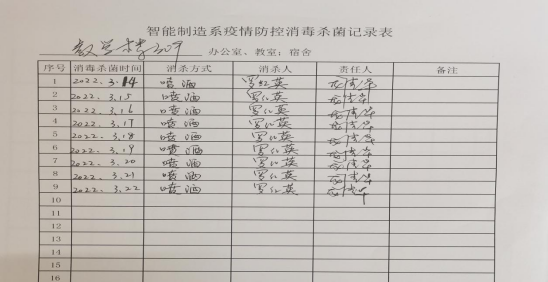 智能制造系疫情防控消毒杀菌记录表
教学楼307 办公室、教室;宿舍
序号 消毒杀菌时间 消杀方式 消杀人 责任人 备注
1 2022.3.14 喷洒 罗红英
2 2022.3.15 喷洒 罗红英
3 2022.3.16 喷洒 罗红英
4 2022.3.17 喷洒 罗红英
5 2022.3.18 喷洒 罗红英
6 2022.3.19 喷洒 罗红英
7 2022.3.20 喷洒 罗红英
8 2022.3.21 喷洒 罗红英
9 2022.3.22 喷洒 罗红英
10
11
12
13
14
15
16